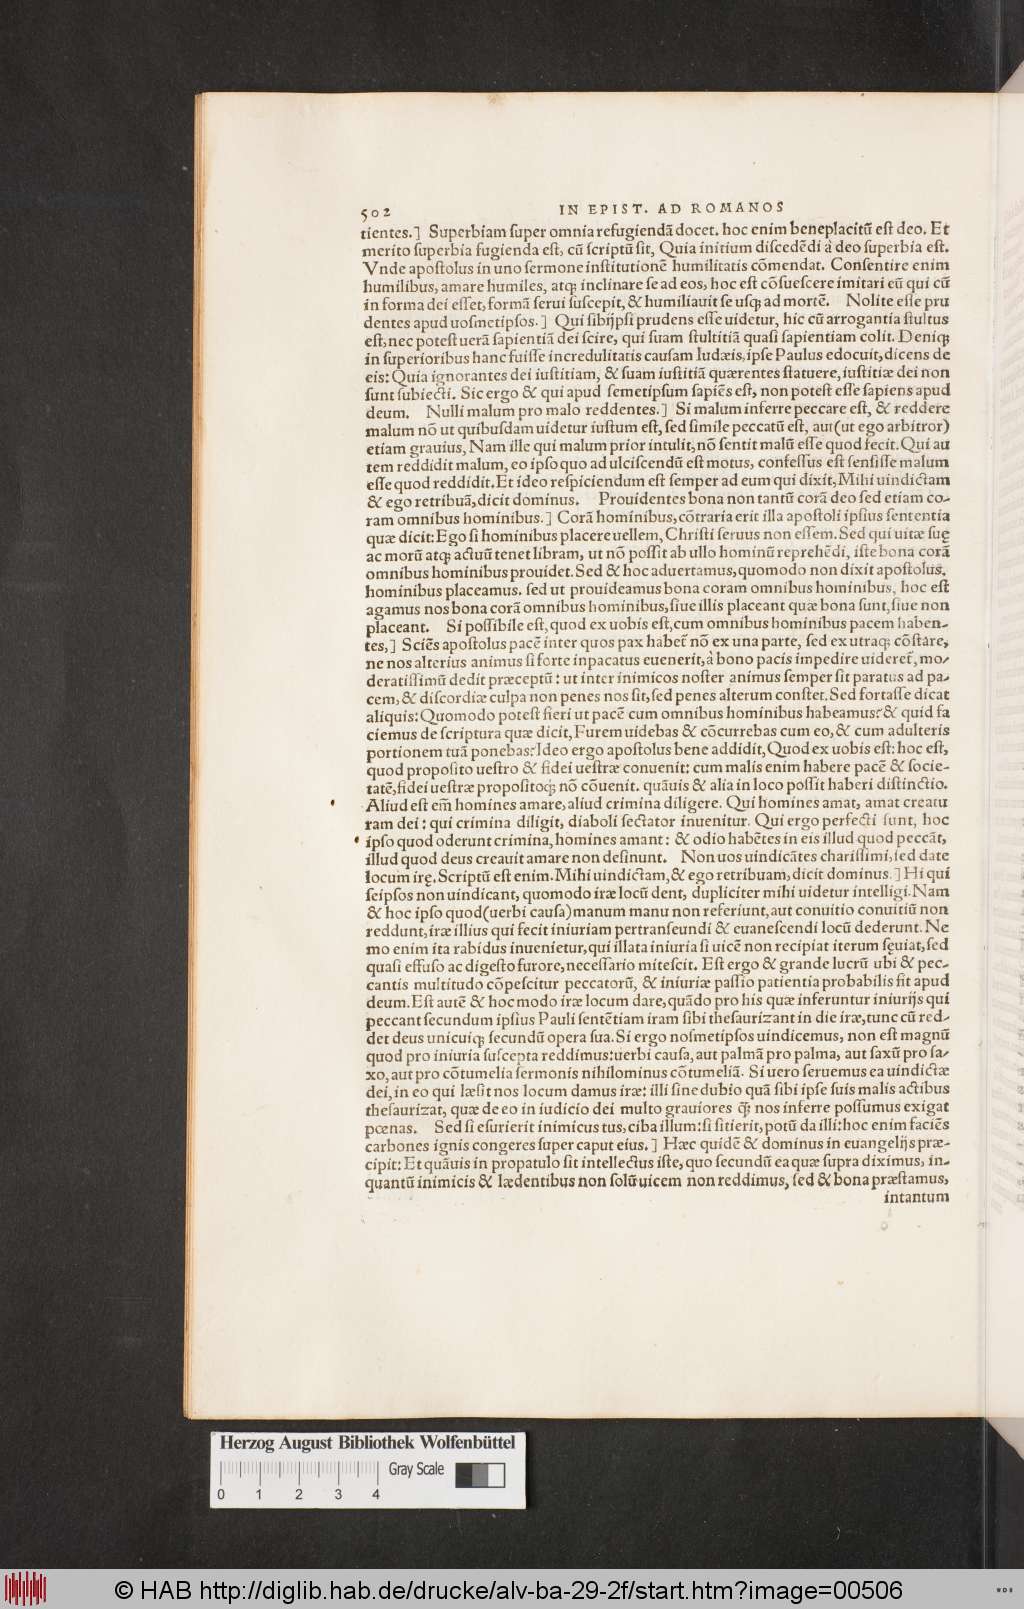 502 IN EPIST. AD ROMANOS
tientes.] Superbiam super omnia refugiendã docet. hoc enim beneplacitũ est deo. Et
merito superbia fugienda est, cũ scriptũ sit, Quia initium discedẽdi à deo superbia est.
Vnde apostolus in uno sermone institutionẽ humilitatis cõmendat. Consentire enim
humilibus, amare humiles, atq; inclinare se ad eos, hoc est cõsuescere imitari eũ qui cũ
in forma dei esset, formã serui suscepit, & humiliauit se usq; ad mortẽ. Nolite esse pru
dentes apud uosmetipsos.] Qui sibijpsi prudens esse uidetur, hic cũ arrogantia stultus
est, nec potest uerã sapientiã dei scire, qui suam stultitiã quasi sapientiam colit. Deniq;
in superioribus hanc fuisse incredulitatis causam Iudæis, ipse Paulus edocuit, dicens de
eis: Quia ignorantes dei iustitiam, & suam iustitiã quærentes statuere, iustitiæ dei non
sunt subiecti. Sic ergo & qui apud semetipsum sapiẽs est, non potest esse sapiens apud
deum. Nulli malum pro malo reddentes.] Si malum inferre peccare est, & reddere
malum nõ ut quibusdam uidetur iustum est, sed simile peccatũ est, aut (ut ego arbitror)
etiam grauius, Nam ille qui malum prior intulit, nõ sentit malũ esse quod fecit. Qui au
tem reddidit malum, eo ipso quo ad ulciscendũ est motus, confessus est sensisse malum
esse quod reddidit. Et ideo respiciendum est semper ad eum qui dixit, Mihi uindictam
& ego retribuã, dicit dominus. Prouidentes bona non tantũ corã deo sed etiam co-
ram omnibus hominibus.] Corã hominibus, cõtraria erit illa apostoli ipsius sententia
quæ dicit: Ego si hominibus placere uellem, Christi seruus non essem. Sed qui uitæ suę
ac morũ atq; actuũ tenet libram, ut nõ possit ab ullo hominũ reprehẽdi, iste bona corã
omnibus hominibus prouidet. Sed & hoc aduertamus, quomodo non dixit apostolus,
hominibus placeamus. sed ut prouideamus bona coram omnibus hominibus, hoc est
agamus nos bona corã omnibus hominibus, siue illis placeant quæ bona sunt, siue non
placeant. Si possibile est, quod ex uobis est, cum omnibus hominibus pacem haben-
tes,] Sciẽs apostolus pacẽ inter quos pax habet᷑ nõ ex una parte, sed ex utraq; cõstare,
ne nos alterius animus si forte inpacatus euenerit, à bono pacis impedire uideret᷑, mo-
deratissimũ dedit præceptũ: ut inter inimicos noster animus semper sit paratus ad pa-
cem, & discordiæ culpa non penes nos sit, sed penes alterum constet. Sed fortasse dicat
aliquis: Quomodo potest fieri ut pacẽ cum omnibus hominibus habeamus? & quid fa
ciemus de scriptura quæ dicit, Furem uidebas & cõcurrebas cum eo, & cum adulteris
portionem tuã ponebas? Ideo ergo apostolus bene addidit, Quod ex uobis est: hoc est,
quod proposito uestro & fidei uestræ conuenit: cum malis enim habere pacẽ & socie-
tatẽ, fidei uestræ propositoq; nõ cõuenit. quãuis & alia in loco possit haberi distinctio.
Aliud est em̃ homines amare, aliud crimina diligere. Qui homines amat, amat creatu
ram dei: qui crimina diligit, diaboli sectator inuenitur. Qui ergo perfecti sunt, hoc
ipso quod oderunt crimina, homines amant: & odio habẽtes in eis illud quod peccãt,
illud quod deus creauit amare non desinunt. Non uos uindicãtes charissimi, sed date
locum irę. Scriptũ est enim. Mihi uindictam, & ego retribuam, dicit dominus.] Hi qui
seipsos non uindicant, quomodo iræ locũ dent, dupliciter mihi uidetur intelligi. Nam
& hoc ipso quod (uerbi causa) manum manu non referiunt, aut conuitio conuitiũ non
reddunt, iræ illius qui fecit iniuriam pertranseundi & euanescendi locũ dederunt. Ne
mo enim ita rabidus inuenietur, qui illata iniuria si uicẽ non recipiat iterum sęuiat, sed
quasi effuso ac digesto furore, necessario mitescit. Est ergo & grande lucrũ ubi & pec-
cantis multitudo cõpescitur peccatorũ, & iniuriæ passio patientia probabilis fit apud
deum. Est autẽ & hoc modo iræ locum dare, quãdo pro his quæ inferuntur iniurijs qui
peccant secundum ipsius Pauli sentẽtiam iram sibi thesaurizant in die iræ, tunc cũ red-
det deus unicuiq; secundũ opera sua. Si ergo nosmetipsos uindicemus, non est magnũ
quod pro iniuria suscepta reddimus: uerbi causa, aut palmã pro palma, aut saxũ pro sa-
xo, aut pro cõtumelia sermonis nihilominus cõtumeliã. Si uero seruemus ea uindictæ
dei, in eo qui læsit nos locum damus iræ: illi sine dubio quã sibi ipse suis malis actibus
thesaurizat, quæ de eo in iudicio dei multo grauiores q̃; nos inferre possumus exigat
pœnas. Sed si esurierit inimicus tus, ciba illum: si sitierit, potũ da illi: hoc enim faciẽs
carbones ignis congeres super caput eius.] Hæc quidẽ & dominus in euangelijs præ-
cipit: Et quãuis in propatulo sit intellectus iste, quo secundũ ea quæ supra diximus, in-
quantũ inimicis & lædentibus non solũ uicem non reddimus, sed & bona præstamus,
intantum
Herzog August Bibliothek Wolfenbüttel
Gray Scale
0 1 2 3 4
© HAB http://diglib.hab.de/drucke/alv-ba-29-2f/start.htm?image=00506